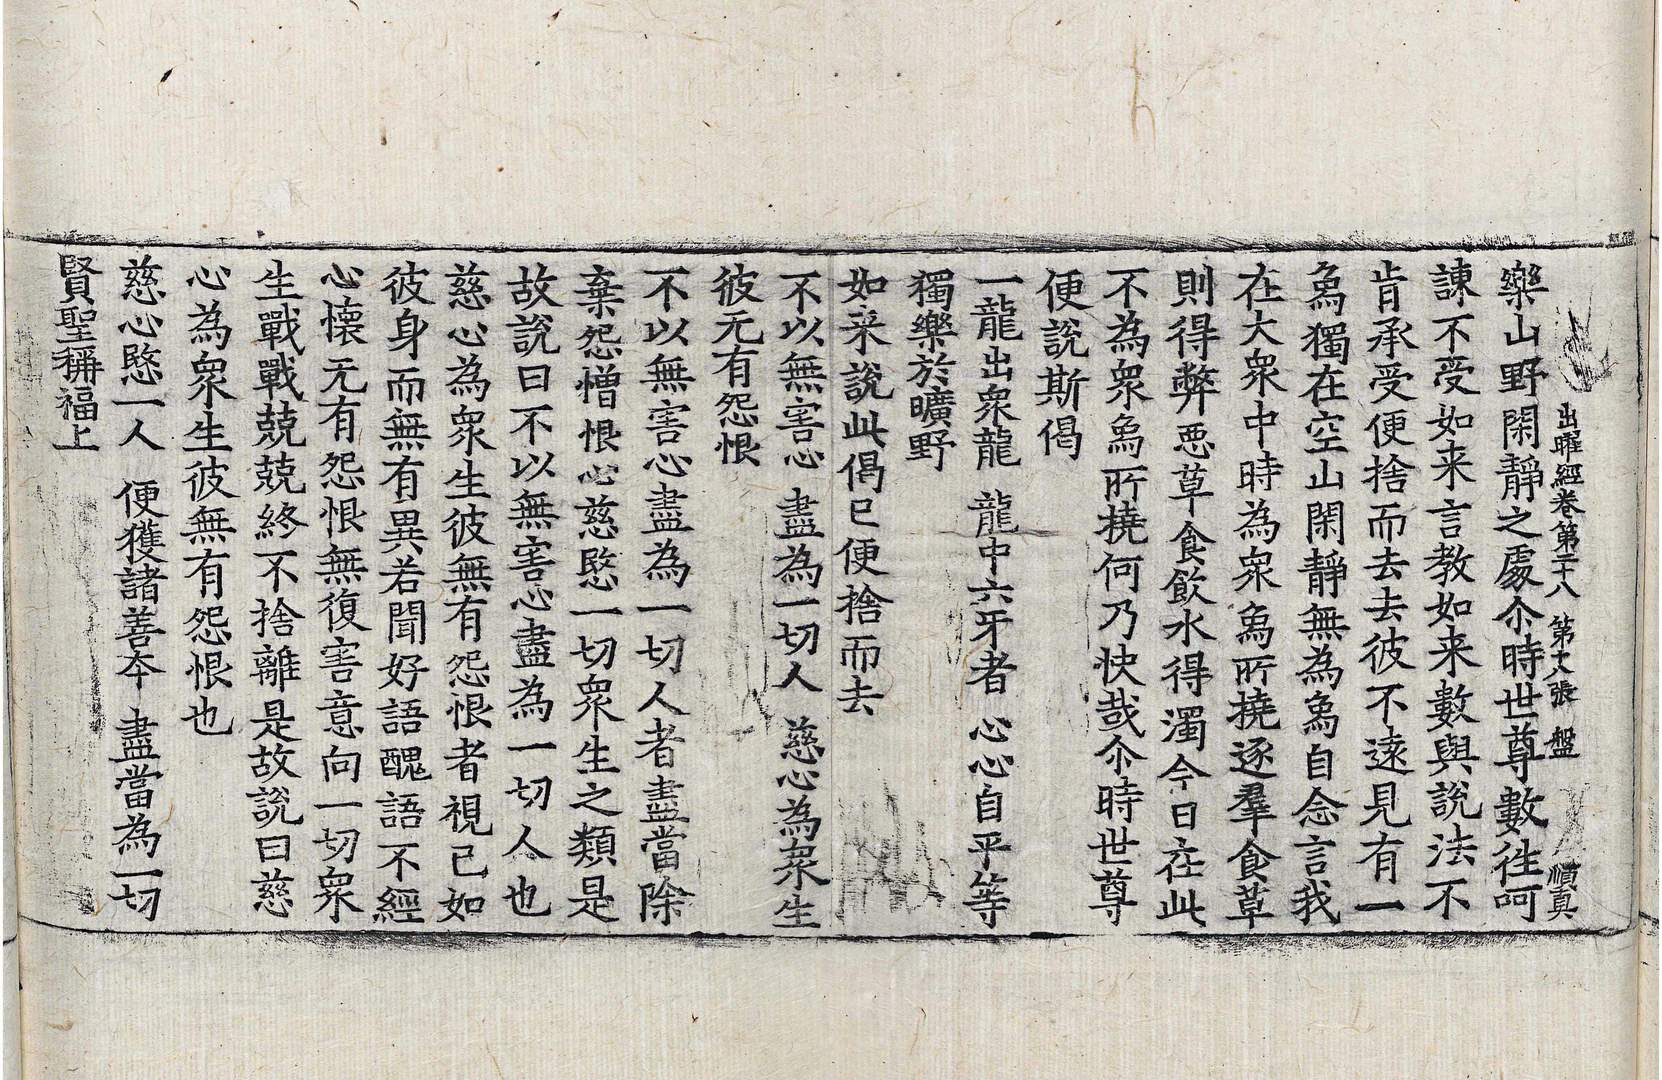 出曜經卷第二十八 第十八張 盤 順真
樂山野閑靜之處尒時世尊數往呵
諫不受如来言教如来數與說法不
肯承受便捨而去去彼不遠見有一
爲獨在空山閑靜無為爲自念言我
在大衆中時為衆爲所撓逐羣食草
則得弊惡草食飲水得濁今日在此
不為衆爲所撓何乃快哉尒時世尊
便說斯偈
一龍出衆龍 龍中六牙者 心心自平等
獨樂於曠野
如来說此偈已便捨而去
不以無害心 盡為一切人 慈心為衆生
彼无有怨恨
不以無害心盡為一切人者盡當除
棄怨憎恨心慈愍一切衆生之類是
故說曰不以無害心盡為一切人也
慈心為衆生彼無有怨恨者視己如
彼身而無有異若聞好語醜語不經
心懷无有怨恨無復害意向一切衆
生戰戰兢兢終不捨離是故說曰慈
心為衆生彼無有怨恨也
慈心愍一人 便獲諸善本 盡當為一切
賢聖稱福上